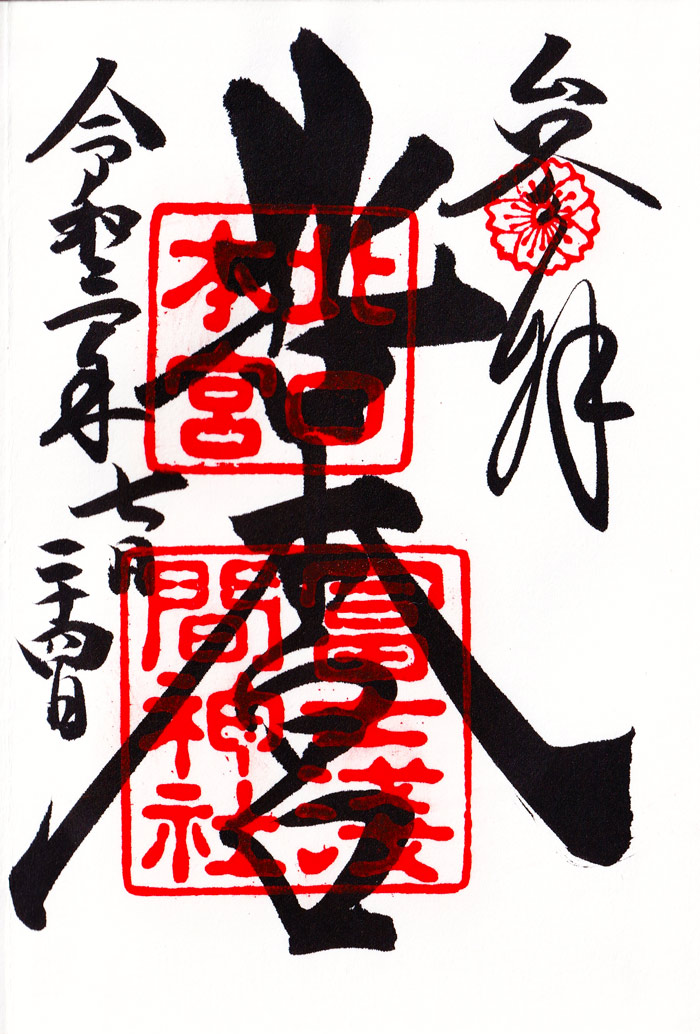 参拝
北口本宮
北口
本宮
冨士淺
間神社
令和二年七月二十四日